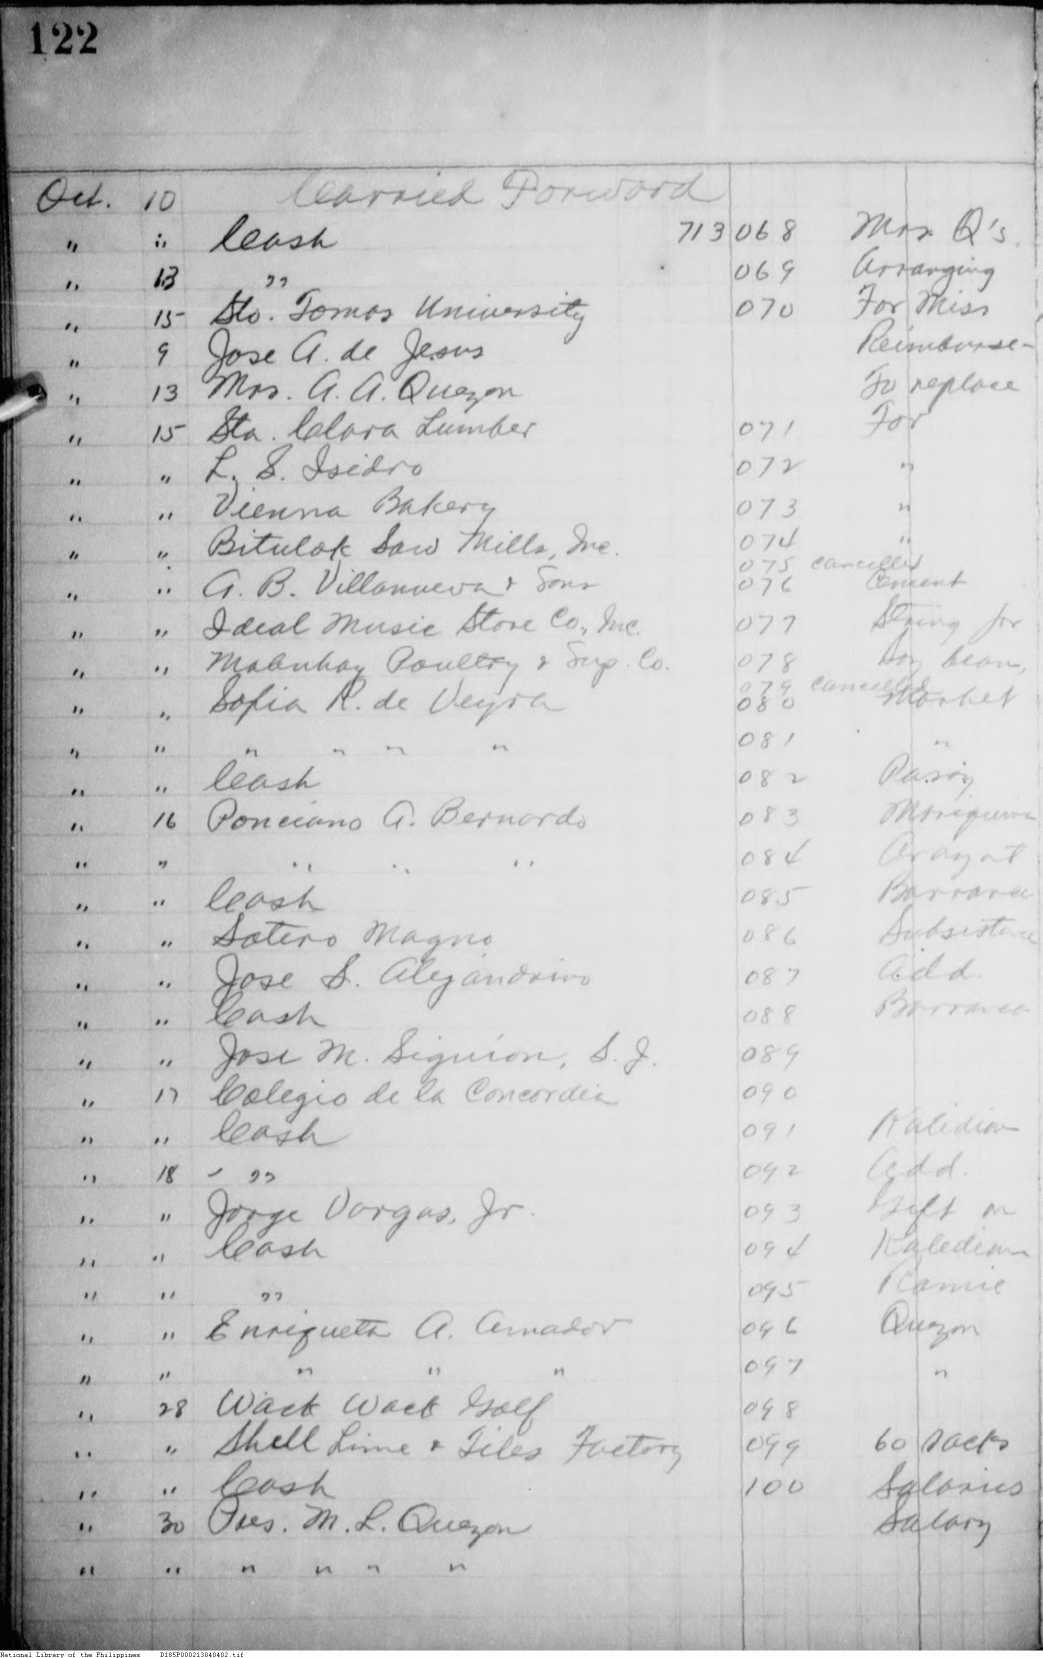 122
Oct. 10 Carried Forward
" " Cash 713 068 Mrs. Q's.
" 13 " 069 Arranging
" 15 Sto. Tomas University 070 For Miss
" 9 Jose A. de Jesus Reimburse-
" 13 Mrs. A. A. Quezon To replace
" 15 Sta. Clara Lumber 071 For
" " L. S. Isidro 072 "
" " Vienna Bakery 073 "
" " Bitulok Saw Mills, Inc. 074 "
075 cancelled
" " A. B. Villanueva & Sons 076 Cement
" " Ideal Music Store Co., Inc. 077 String for
" " Mabuhay Poultry & Sup. Co. 078 Soy bean,
079 cancelled
" " Sofia R. de Veyra 080 Market
" " " " " " 081 "
" " Cash 082 Pasig
" 16 Ponciano A. Bernardo 083 Mariquina
" " " " " 084 Arayat
" " Cash 085 Barranca
" " Sotero Magno 086 Subsistence
" " Jose S. Alejandrino 087 Add.
" " Cash 088 Barranca
" " Jose M. Siguion, S. J. 089
" 17 Colegio de la Concordia 090
" " Cash 091 Kaledian
" 18 " 092 Add.
" " Jorge Vargas, Jr. 093 Gift on
" " Cash 094 Kaledian
" " " 095 Ramie
" " Enriqueta A. Amador 096 Quezon
" " " " " 097 "
" 28 Wack Wack Golf 098
" " Shell Lime & Tiles Factory 099 60 sacks
" " Cash 100 Salaries
" 30 Pres. M. L. Quezon Salary
" " " " " "
National Library of the Philippines D185P000213040402.tif